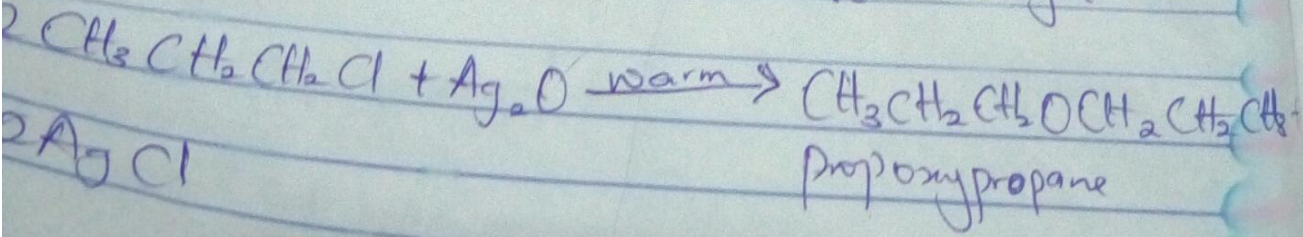 2 CH₃CH₂CH₂Cl + Ag₂O warm→ CH₃CH₂CH₂OCH₂CH₂CH₃ +
2AgCl
propoxypropane